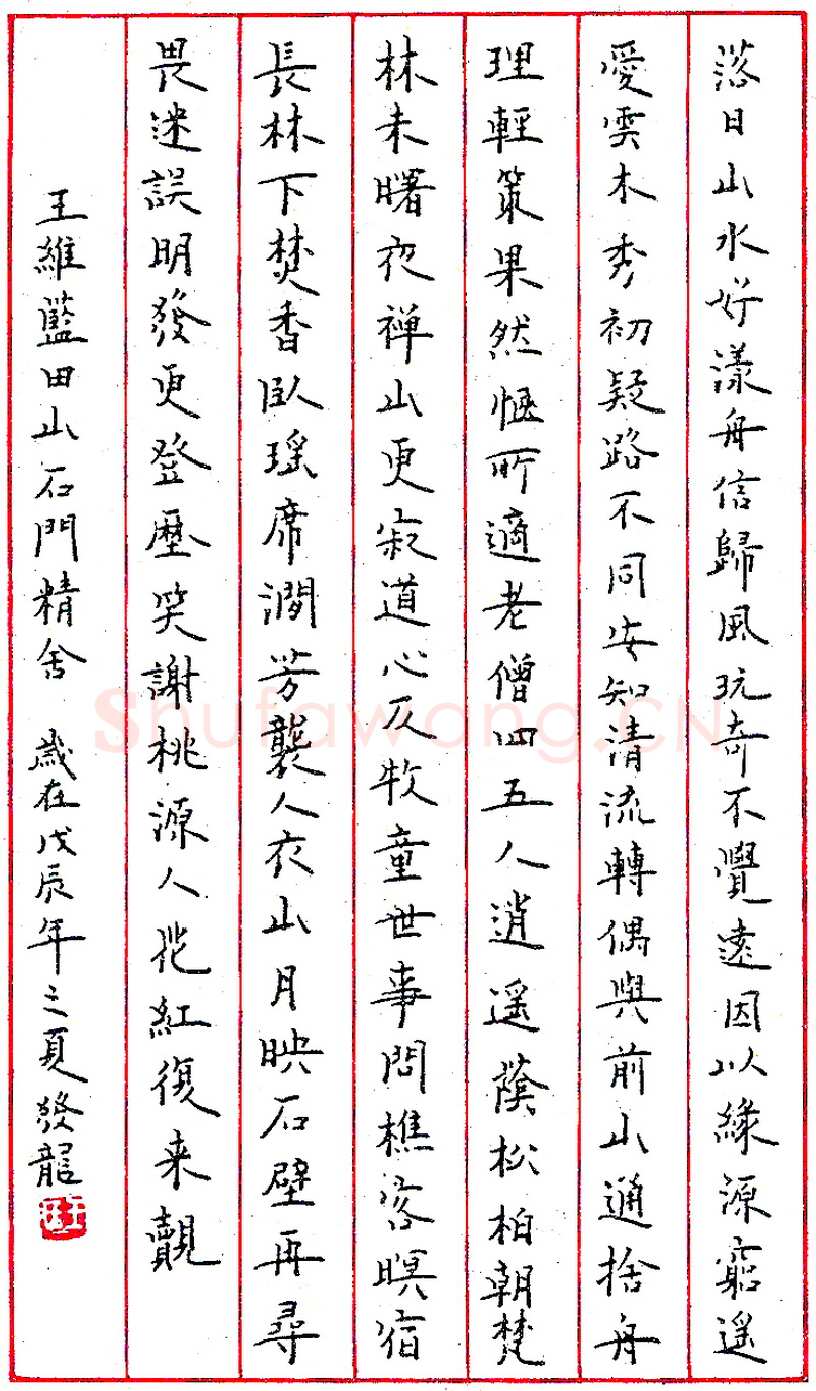 落日山水好漾舟信歸風玩奇不覺遠因以緣源窮遥
愛雲木秀初疑路不同安知清流轉偶與前山通捨舟
理輕策果然愜所適老僧四五人逍遥蔭松柏朝梵
林未曙夜禅山更寂道心及牧童世事問樵客暝宿
長林下焚香臥瑶席澗芳襲人衣山月映石壁再尋
畏迷誤明發更登歷笑謝桃源人花紅復来覿
王維藍田山石門精舍 歲在戊辰年之夏發龍
Shufawang.CN